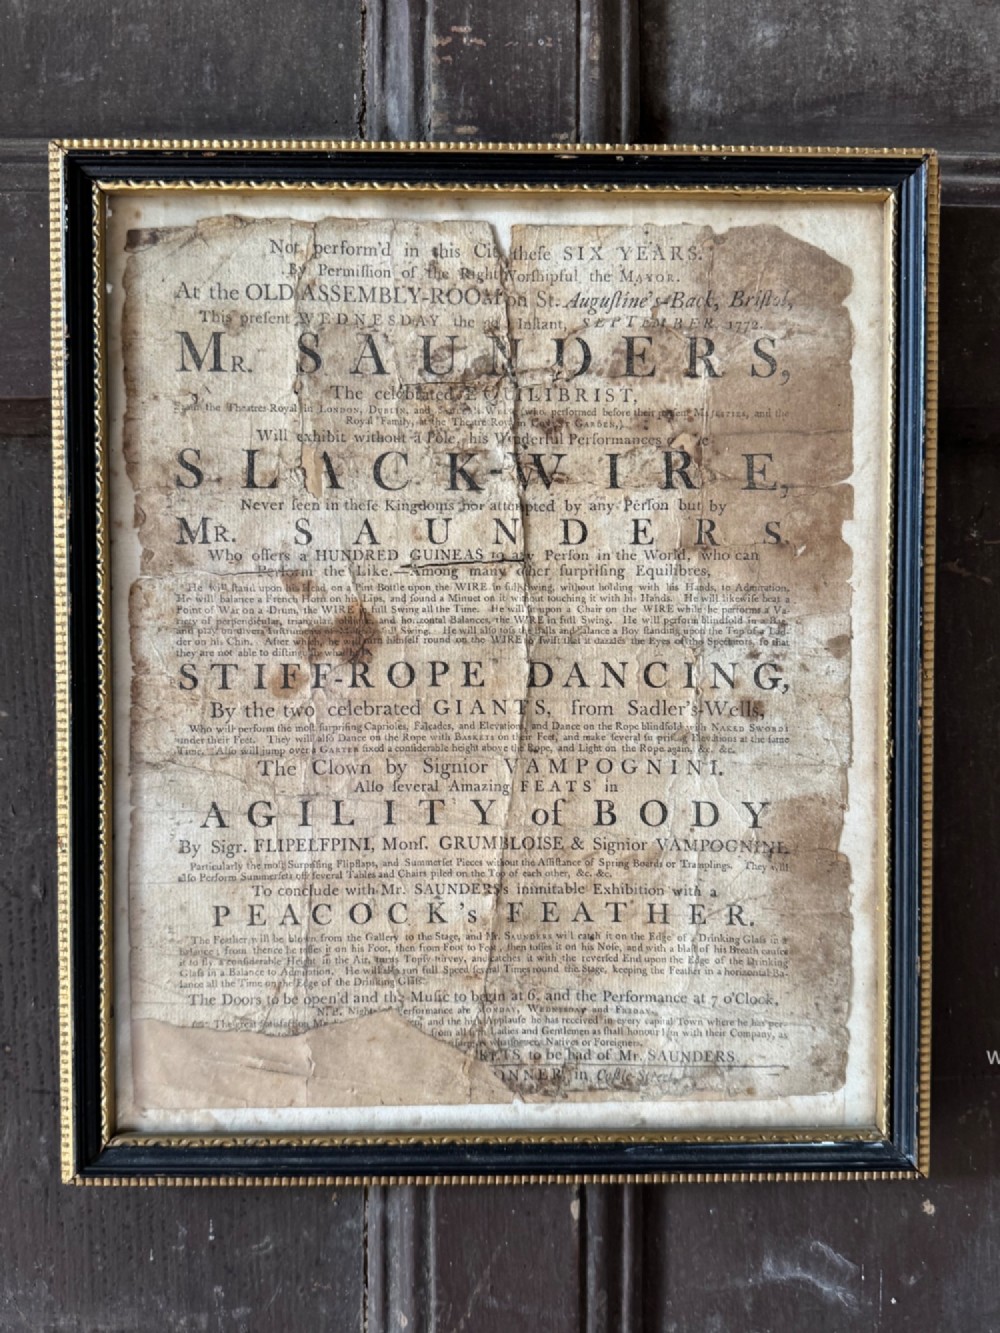 Not perform'd in this these SIX YEARS.
By Permiſſion of the Right Worſhipful the MAYOR.
At the OLD ASSEMBLY-ROOM on St. Auguſtine's-Back, Briſtol,
This preſent WEDNESDAY the Inſtant, SEPTEMBER 1772.
MR. SAUNDERS,
The celebrated EQUILIBRIST,
the Theatres Royal in LONDON, DUBLIN, and (who performed before their MAJESTIES, and the
Royal Family, at the Theatre Royal in GARDEN,)
Will exhibit without a Pole, his Wonderful Performances
SLACK-WIRE,
Never ſeen in theſe Kingdoms nor attempted by any Perſon but by
MR. SAUNDERS.
Who offers a HUNDRED GUINEAS to any Perſon in the World, who can
Perform the Like.—Among many other ſurpriſing Equilibres,
He will ſtand upon his Head, on a Pint Bottle upon the WIRE in full Swing, without holding with his Hands, to Admiration,
He will balance a French Horn on his Lips, and ſound a Minuet on it without touching it with his Hands. He will likewiſe beat a
Point of War on a Drum, the WIRE in full Swing all the Time. He will upon a Chair on the WIRE while he performs a Va-
riety of perpendicular, triangular, and horizontal Balances, the WIRE in full Swing. He will perform blindfold in a
and play on divers Inſtruments Swing. He will alſo toſs the Balls and balance a Boy ſtanding upon the Top of a Lad-
der on his Chin. After which, he will turn himſelf round on the WIRE ſo ſwift that it dazzles the Eyes of the Spectators, ſo that
they are not able to diſtinguiſh
STIFF-ROPE DANCING,
By the two celebrated GIANTS, from Sadler's-Wells,
Who will perform the moſt ſurpriſing Caprioles, Falcades, and Elevations, and Dance on the Rope blindfold with NAKED SWORDS
under their Feet. They will alſo Dance on the Rope with BASKETS on their Feet, and make ſeveral ſurpriſing Elevations at the ſame
Time. Alſo will jump over a GARTER fixed a conſiderable height above the Rope, and Light on the Rope again, &c. &c.
The Clown by Signior VAMPOGNINI.
Alſo ſeveral Amazing FEATS in
AGILITY of BODY
By Sigr. FLIPELFPINI, Monſ. GRUMBLOISE & Signior VAMPOGNINI.
Particularly the moſt Surpriſing Flipflaps, and Summerſet Pieces without the Aſſiſtance of Spring Boards or Tramplings. They will
alſo Perform Summerſets off ſeveral Tables and Chairs piled on the Top of each other, &c. &c.
To conclude with Mr. SAUNDERS's inimitable Exhibition with a
PEACOCK's FEATHER.
The Feather will be blown from the Gallery to the Stage, and Mr. SAUNDERS will catch it on the Edge of a Drinking Glaſs in a
balance; from thence he toſſes it on his Foot, then from Foot to Foot, then toſſes it on his Noſe, and with a blaſt of his Breath cauſes
it to fly a conſiderable Height in the Air, turns Topſy-turvey, and catches it with the reverſed End upon the Edge of the Drinking
Glaſs in a Balance to Admiration. He will alſo run full Speed ſeveral Times round the Stage, keeping the Feather in a horizontal Ba-
lance all the Time on the Edge of the Drinking Glaſs.
The Doors to be open'd and the Muſic to begin at 6, and the Performance at 7 o'Clock,
N.B. Nights Performance are MONDAY, WEDNESDAY and FRIDAY.
The great ſatisfaction Mr. and the high Applauſe he has received in every capital Town where he has per-
from all ſuch Ladies and Gentlemen as ſhall honour him with their Company, as
whatſoever, Natives or Foreigners.
to be had of Mr. SAUNDERS
in Caſtle-Street